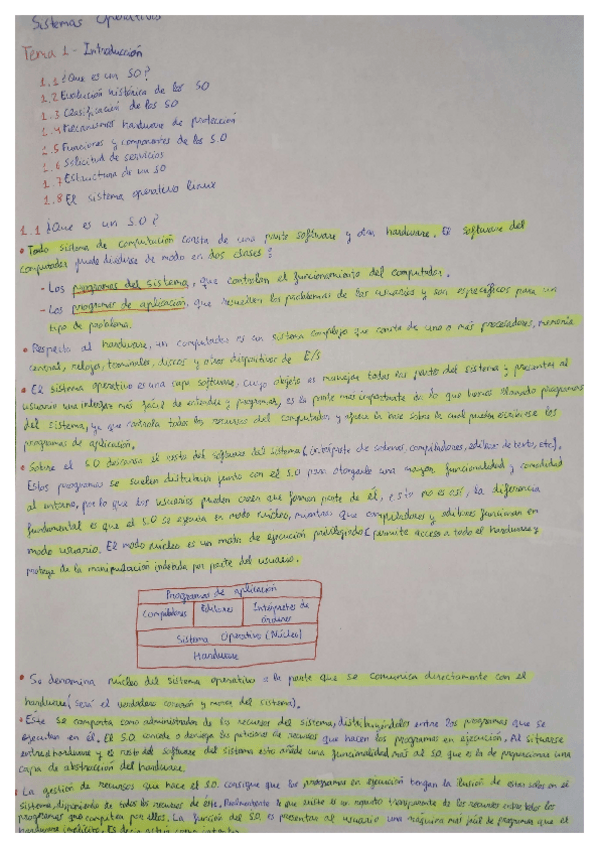 Sistemas Operativos
Tema 1 - Introducción
1.1 ¿Que es un SO?
1.2 Evolución histórica de los SO
1.3 Clasificación de los SO
1.4 Mecanismos hardware de protección
1.5 Funciones y componentes de los S.O
1.6 Solicitud de servicios
1.7 Estructura de un SO
1.8 El sistema operativo linux
1.1 ¿Que es un S.O?
• Todo sistema de computación consta de una parte software y otra hardware. El software del
computador puede dividirse de modo en dos clases:
- Los programas del sistema, que controlan el funcionamiento del computador.
- Los programas de aplicación, que resuelven los problemas de los usuarios y son específicos para un
tipo de problema.
• Respecto al hardware, un computador es un sistema complejo que consta de uno o más procesadores, memoria
central, relojes, terminales, discos y otros dispositivos de E/S
• El sistema operativo es una capa software, cuyo objeto es manejar todas las partes del sistema y presentar al
usuario una interfaz más fácil de entender y programar, es la parte más importante de lo que hemos llamado programas
del sistema, ya que controla todos los recursos del computador, y ofrece la base sobre la cual pueden escribirse los
programas de aplicación.
• Sobre el S.O descansa el resto del software del sistema (intérprete de ordenes, compiladores, editores de texto, etc).
Estos programas se suelen distribuir junto con el S.O para otorgarle una mayor funcionalidad y comodidad
al entorno, por lo que los usuarios pueden creer que forman parte de él, esto no es así, la diferencia
fundamental es que el S.O se ejecuta en modo núcleo, mientras que compiladores y editores funcionan en
modo usuario. El modo núcleo es un modo de ejecución privilegiado (permite acceso a todo el hardware y
protege de la manipulación indebida por parte del usuario.
Programas de aplicación
Compiladores Editores Intérpretes de
órdenes
Sistema Operativo (Núcleo)
Hardware
• Se denomina núcleo del sistema operativo a la parte que se comunica directamente con el
hardware (será el verdadero corazón y motor del sistema).
• Este se comporta como administrador de los recursos del sistema, distribuyéndolos entre los programas que se
ejecutan en él. El S.O. concede o deniega las peticiones de recursos que hacen los programas en ejecución. Al situarse
entre el hardware y el resto del software del sistema esto añade una funcionalidad más al SO, que es la de proporcionar una
capa de abstracción del hardware.
• La gestión de recursos que hace el SO. consigue que los programas en ejecución tengan la ilusión de estar solos en el
sistema, disponiendo de todos los recursos de éste. Realmente lo que existe es un reparto transparente de los recursos entre todos los
programas que compiten por ellos. La función del S.O. es presentar al usuario una máquina más fácil de programar que el
hardware implícito. Es decir actúa como